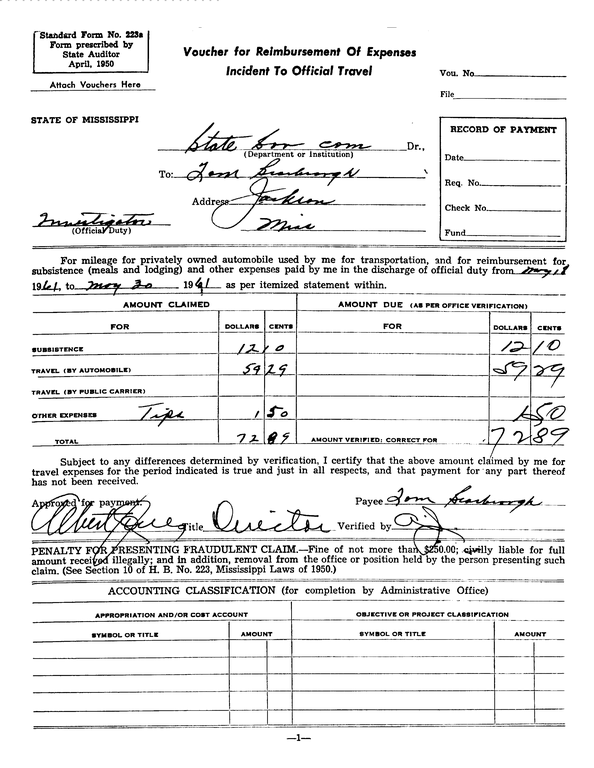 Standard Form No. 223a
Form prescribed by
State Auditor
April, 1950
Attach Vouchers Here
Voucher for Reimbursement Of Expenses
Incident To Official Travel
Vou. No.
File
STATE OF MISSISSIPPI
RECORD OF PAYMENT
Date
Req. No.
Check No.
Fund
State Sov com Dr.,
(Department or Institution)
To: Tom Scarbrough
Address Jackson
Miss
Investigator
(Official Duty)
For mileage for privately owned automobile used by me for transportation, and for reimbursement for
subsistence (meals and lodging) and other expenses paid by me in the discharge of official duty from May 18
1961, to May 20 1961 as per itemized statement within.
AMOUNT CLAIMED AMOUNT DUE (AS PER OFFICE VERIFICATION)
FOR DOLLARS CENTS FOR DOLLARS CENTS
SUBSISTENCE 12 10 12 10
TRAVEL (BY AUTOMOBILE) 59 29 59 29
TRAVEL (BY PUBLIC CARRIER)
OTHER EXPENSES Tips 1 50 1 50
TOTAL 72 89 AMOUNT VERIFIED: CORRECT FOR 72 89
Subject to any differences determined by verification, I certify that the above amount claimed by me for
travel expenses for the period indicated is true and just in all respects, and that payment for any part thereof
has not been received.
Approved for payment: Payee Tom Scarbrough
Albert Jones Title Director Verified by
PENALTY FOR PRESENTING FRAUDULENT CLAIM.—Fine of not more than $250.00; civilly liable for full
amount received illegally; and in addition, removal from the office or position held by the person presenting such
claim. (See Section 10 of H. B. No. 223, Mississippi Laws of 1950.)
ACCOUNTING CLASSIFICATION (for completion by Administrative Office)
APPROPRIATION AND/OR COST ACCOUNT OBJECTIVE OR PROJECT CLASSIFICATION
SYMBOL OR TITLE AMOUNT SYMBOL OR TITLE AMOUNT
—1—